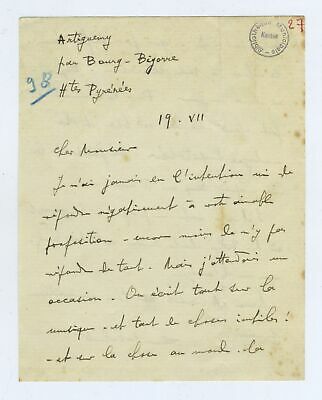 27
Bibliothèque Municipale
Artiguemy
par Bourg-Bigorre
98
Htes Pyrénées
19.VII
Cher Monsieur
Je n'ai jamais eu l'intention ni de
répondre négativement à votre aimable
proposition - encore moins de n'y pas
répondre du tout. Mais j'attendais une
occasion. On écrit tant sur la
musique - et tant de choses inutiles !
- et sur la chose au monde, la